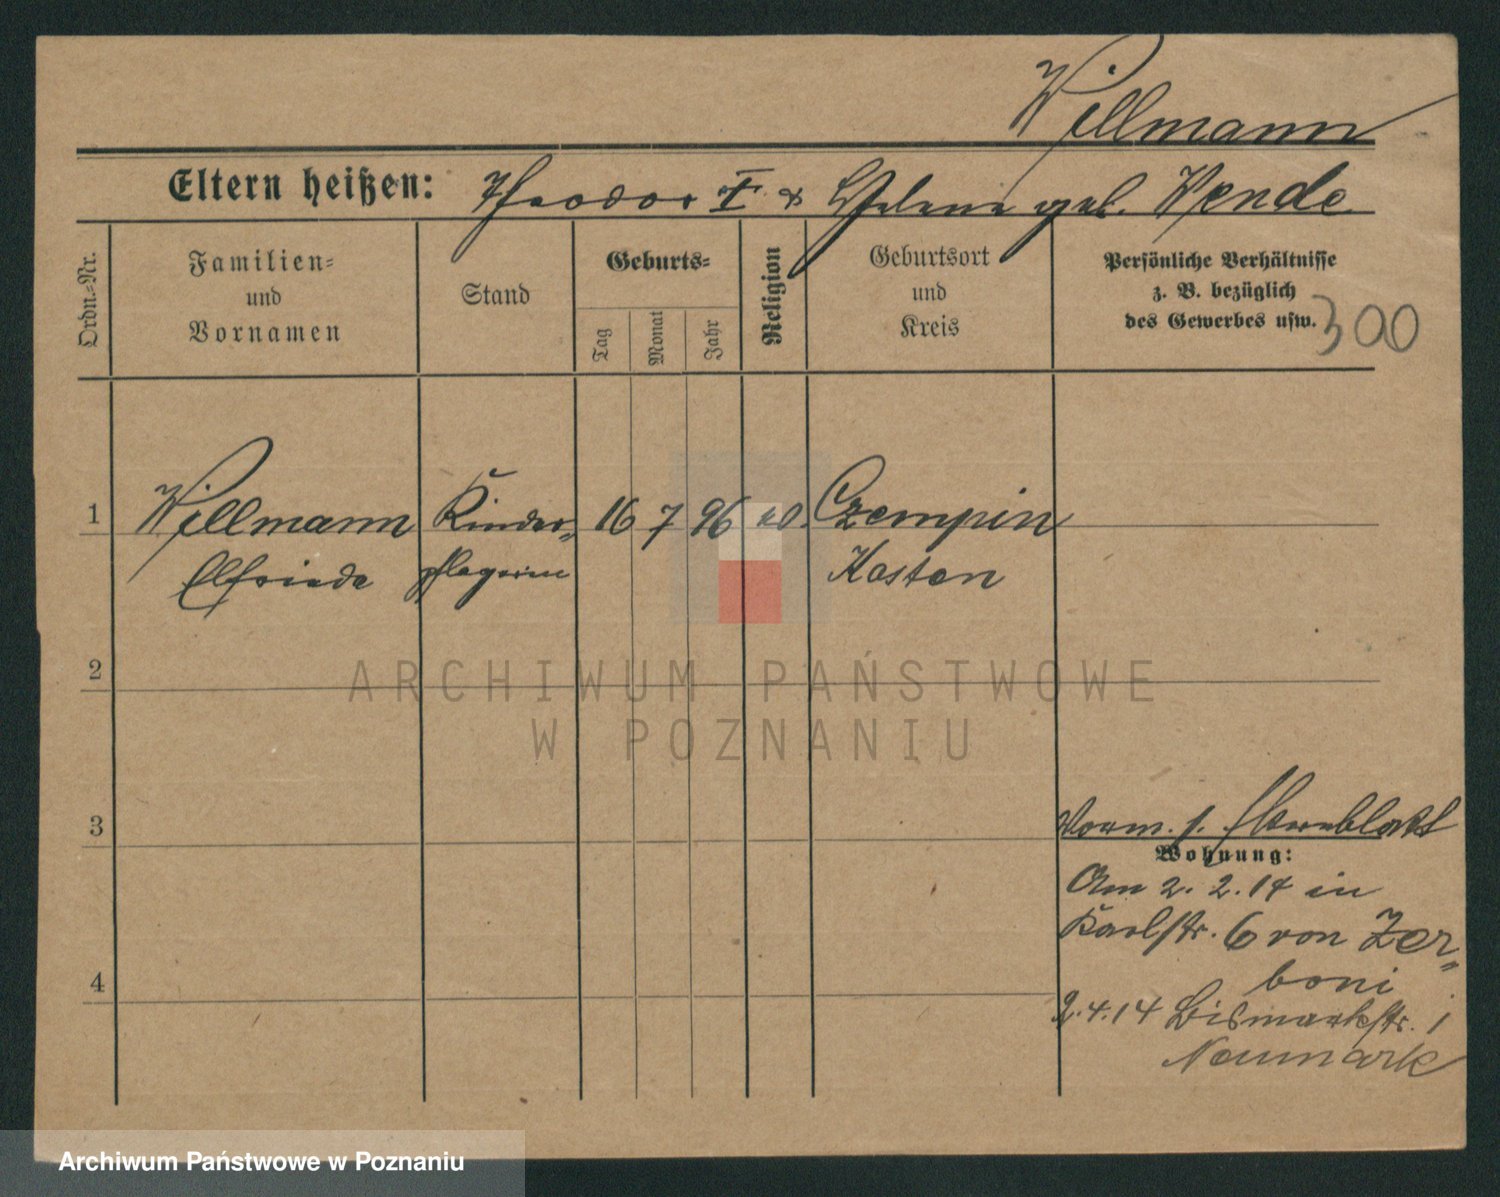 Willmann
Eltern heißen: Theodor I. & Helene geb. Wende
Ordn.-Nr.
Familien-
und
Vornamen
Stand
Geburts-
Tag
Monat
Jahr
Religion
Geburtsort
und
Kreis
Persönliche Verhältnisse
z. B. bezüglich
des Gewerbes usw.
300
1
Willmann Kinder- 16 7 96 Czempin
Elfriede pflegerin Kosten
2
ARCHIWUM PAŃSTWOWE
W POZNANIU
3
Vorm. s.
Wohnung:
Am 2. 2. 14 in
Karlstr. 6 von Zer-
boni
4
2.4.14 Bismarkstr. 1
Neumark
Archiwum Państwowe w Poznaniu